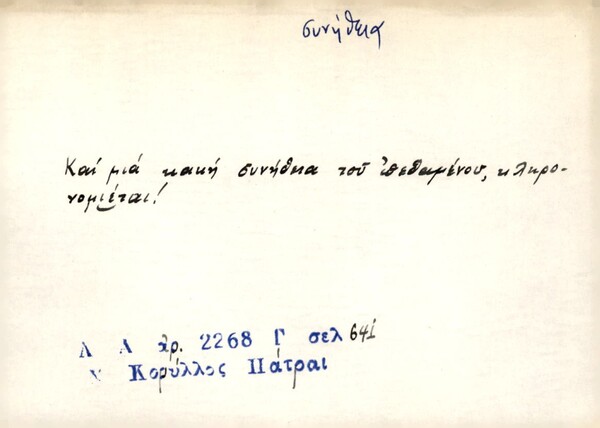 συνήθεια
Καί μιά κακή συνήθεια του πεθαμένου, κληρο-
νομιέται!
Λ Α ἀρ. 2268 Γ σελ 641
Χ Κορύλλος Πάτραι